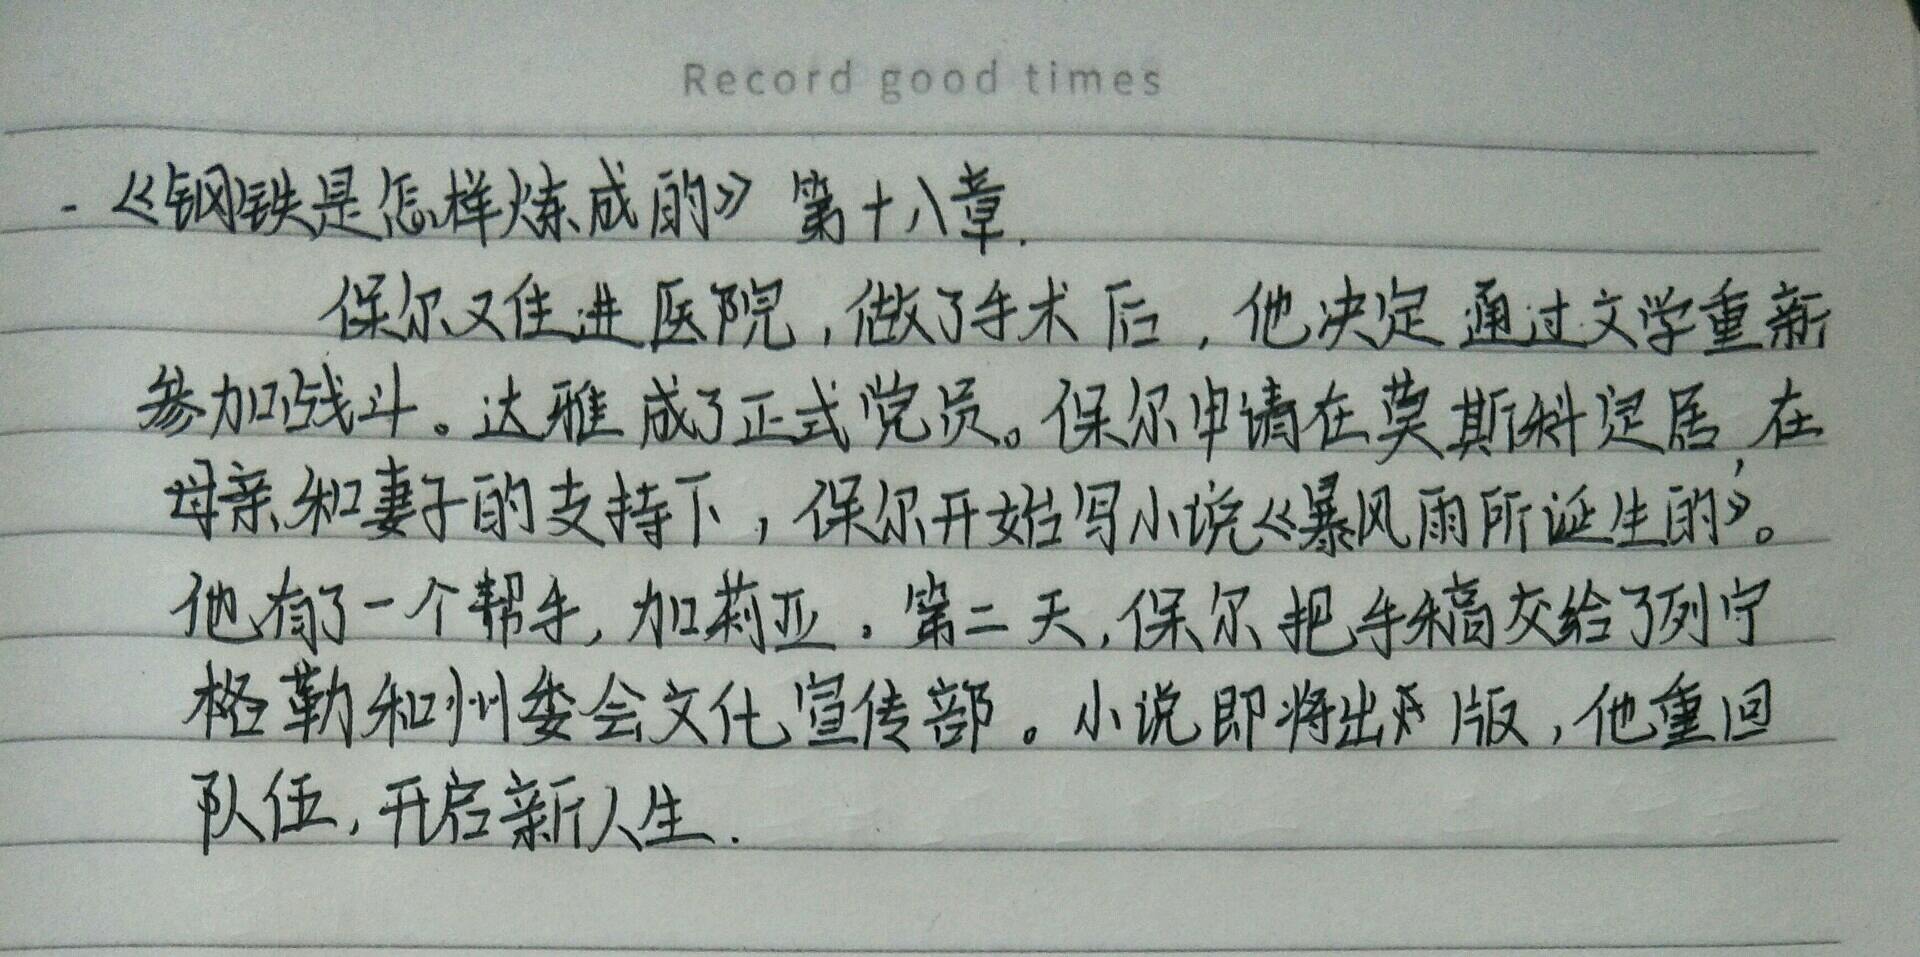 Record good times
-《钢铁是怎样炼成的》第十八章.
保尔又住进医院,做了手术后,他决定通过文学重新
参加战斗。达雅成了正式党员。保尔申请在莫斯科定居,在
母亲和妻子的支持下,保尔开始写小说《暴风雨所诞生的》。
他有了一个帮手,加莉亚。第二天,保尔把手稿交给了列宁
格勒和州委会文化宣传部。小说即将出版,他重回
队伍,开启新人生.